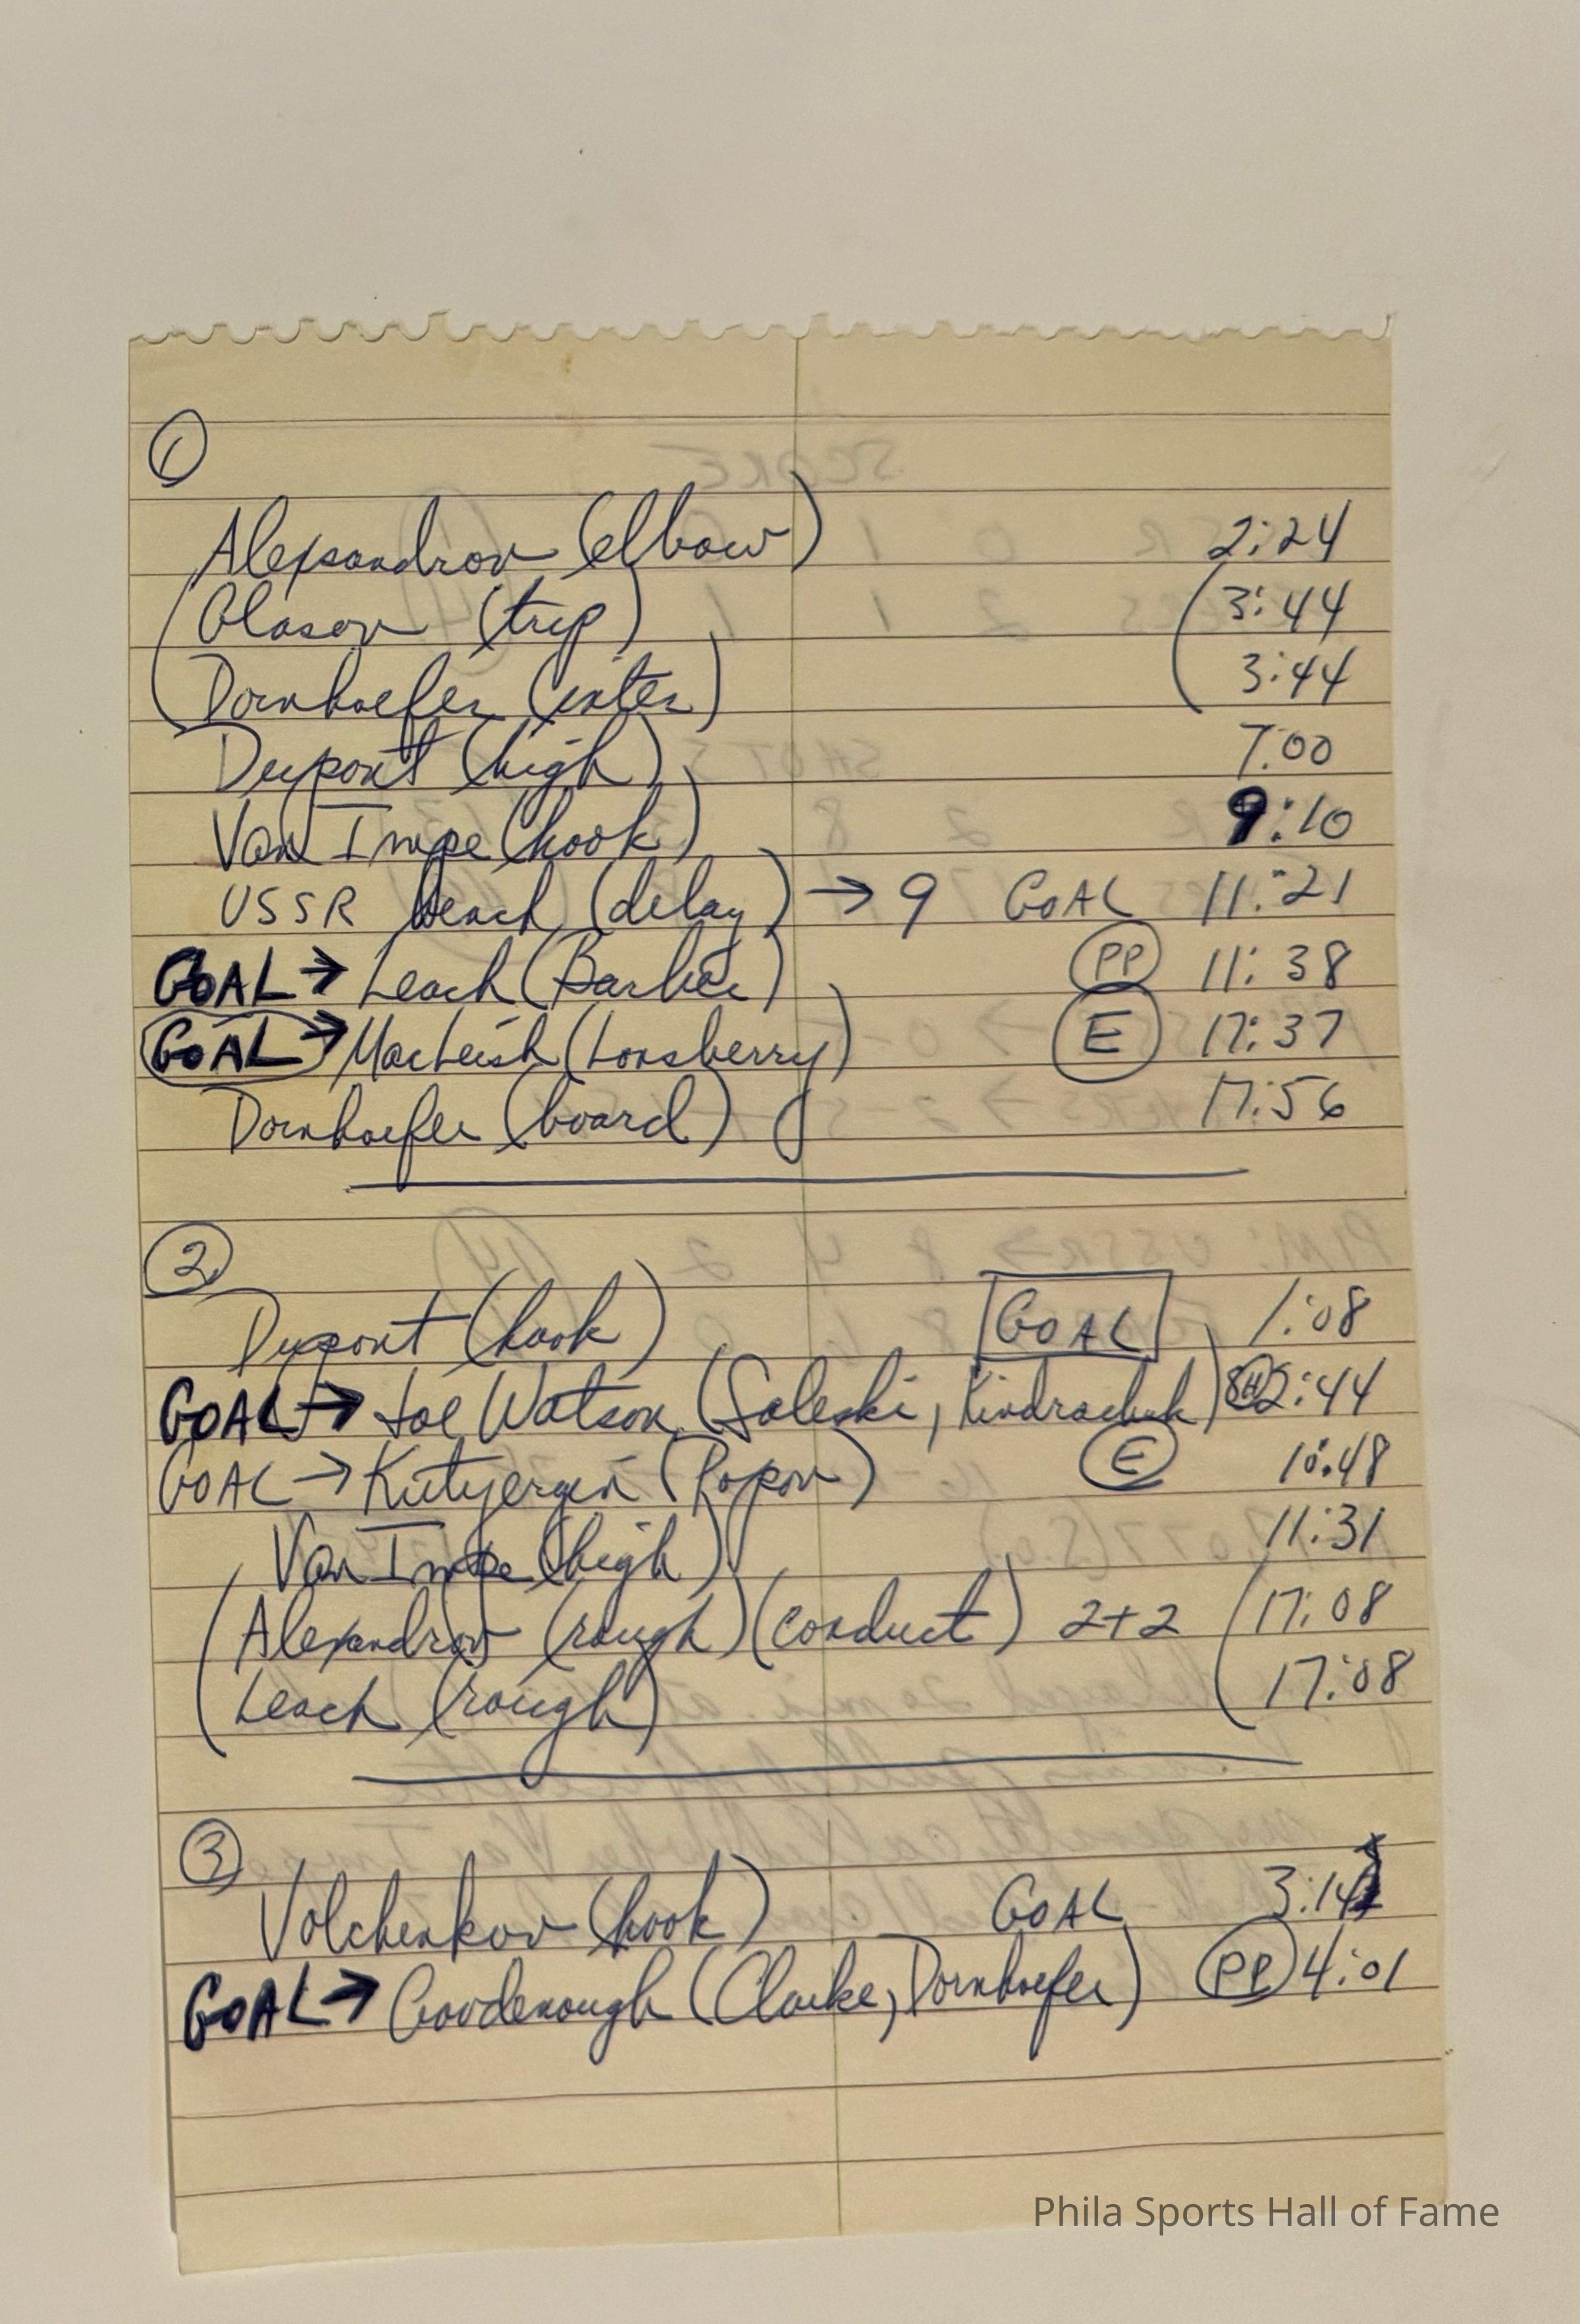 1
Alexsandrov (elbow) 2:24
Glasov (trip) 3:44
Dornhoefer (inter) 3:44
Dupont (high) 7:00
Van Impe (hook) 9:10
USSR bench (delay) → 9 GOAL 11:21
GOAL → Leach (Barber) PP 11:38
GOAL → MacLeish (Lonsberry) E 17:37
Dornhoefer (board) 17:56
2
Dupont (hook) GOAL 1:08
GOAL → Joe Watson (Saleski, Kindrachuk) SH 2:44
GOAL → Kutyergin (Popov) E 10:48
Van Impe (high) 11:31
Alexandrov (rough) (conduct) 2+2 17:08
Leach (rough) 17:08
3
Volchenkov (hook) GOAL 3:14
GOAL → Goodenough (Clarke, Dornhoefer) PP 4:01
Phila Sports Hall of Fame